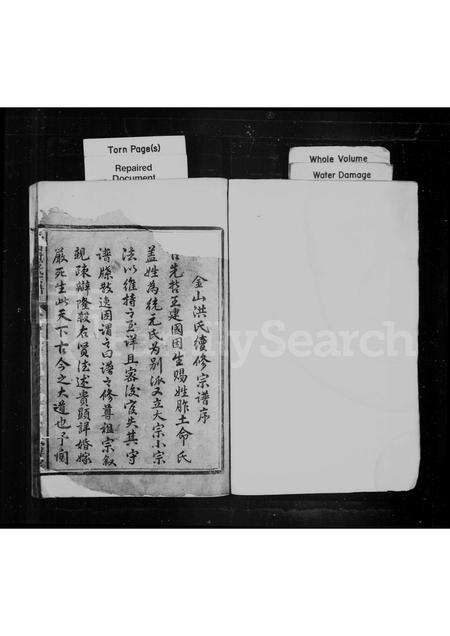 Torn Page(s)
Repaired
Document
Whole Volume
Water Damage
金山洪氏續修宗譜序
先哲王建國因生賜姓胙土命氏
蓋姓為統元氏為別派又立大宗小宗
法以維持之至詳且密後官失其守
譜牒散逸因謂之曰譜之修尊祖宗敘
親疎辯隆殺右賢法述貴顯詳婚嫁
嚴死生此天下古今之大道也予聞
FamilySearch